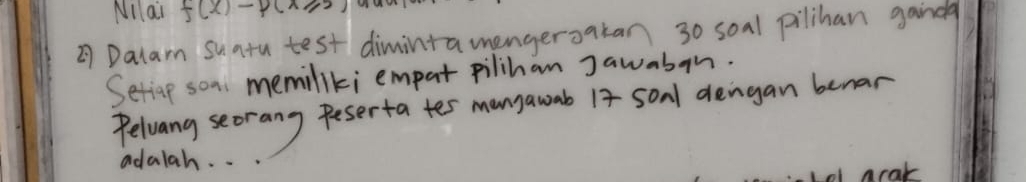 Nilai f(x) = P(X≥5)
2) Dalam suatu test diminta mengerjakan 30 soal pilihan ganda
Setiap soal memiliki empat pilihan Jawaban.
Peluang seorang Peserta tes menjawab 17 soal dengan benar
adalah...
arak